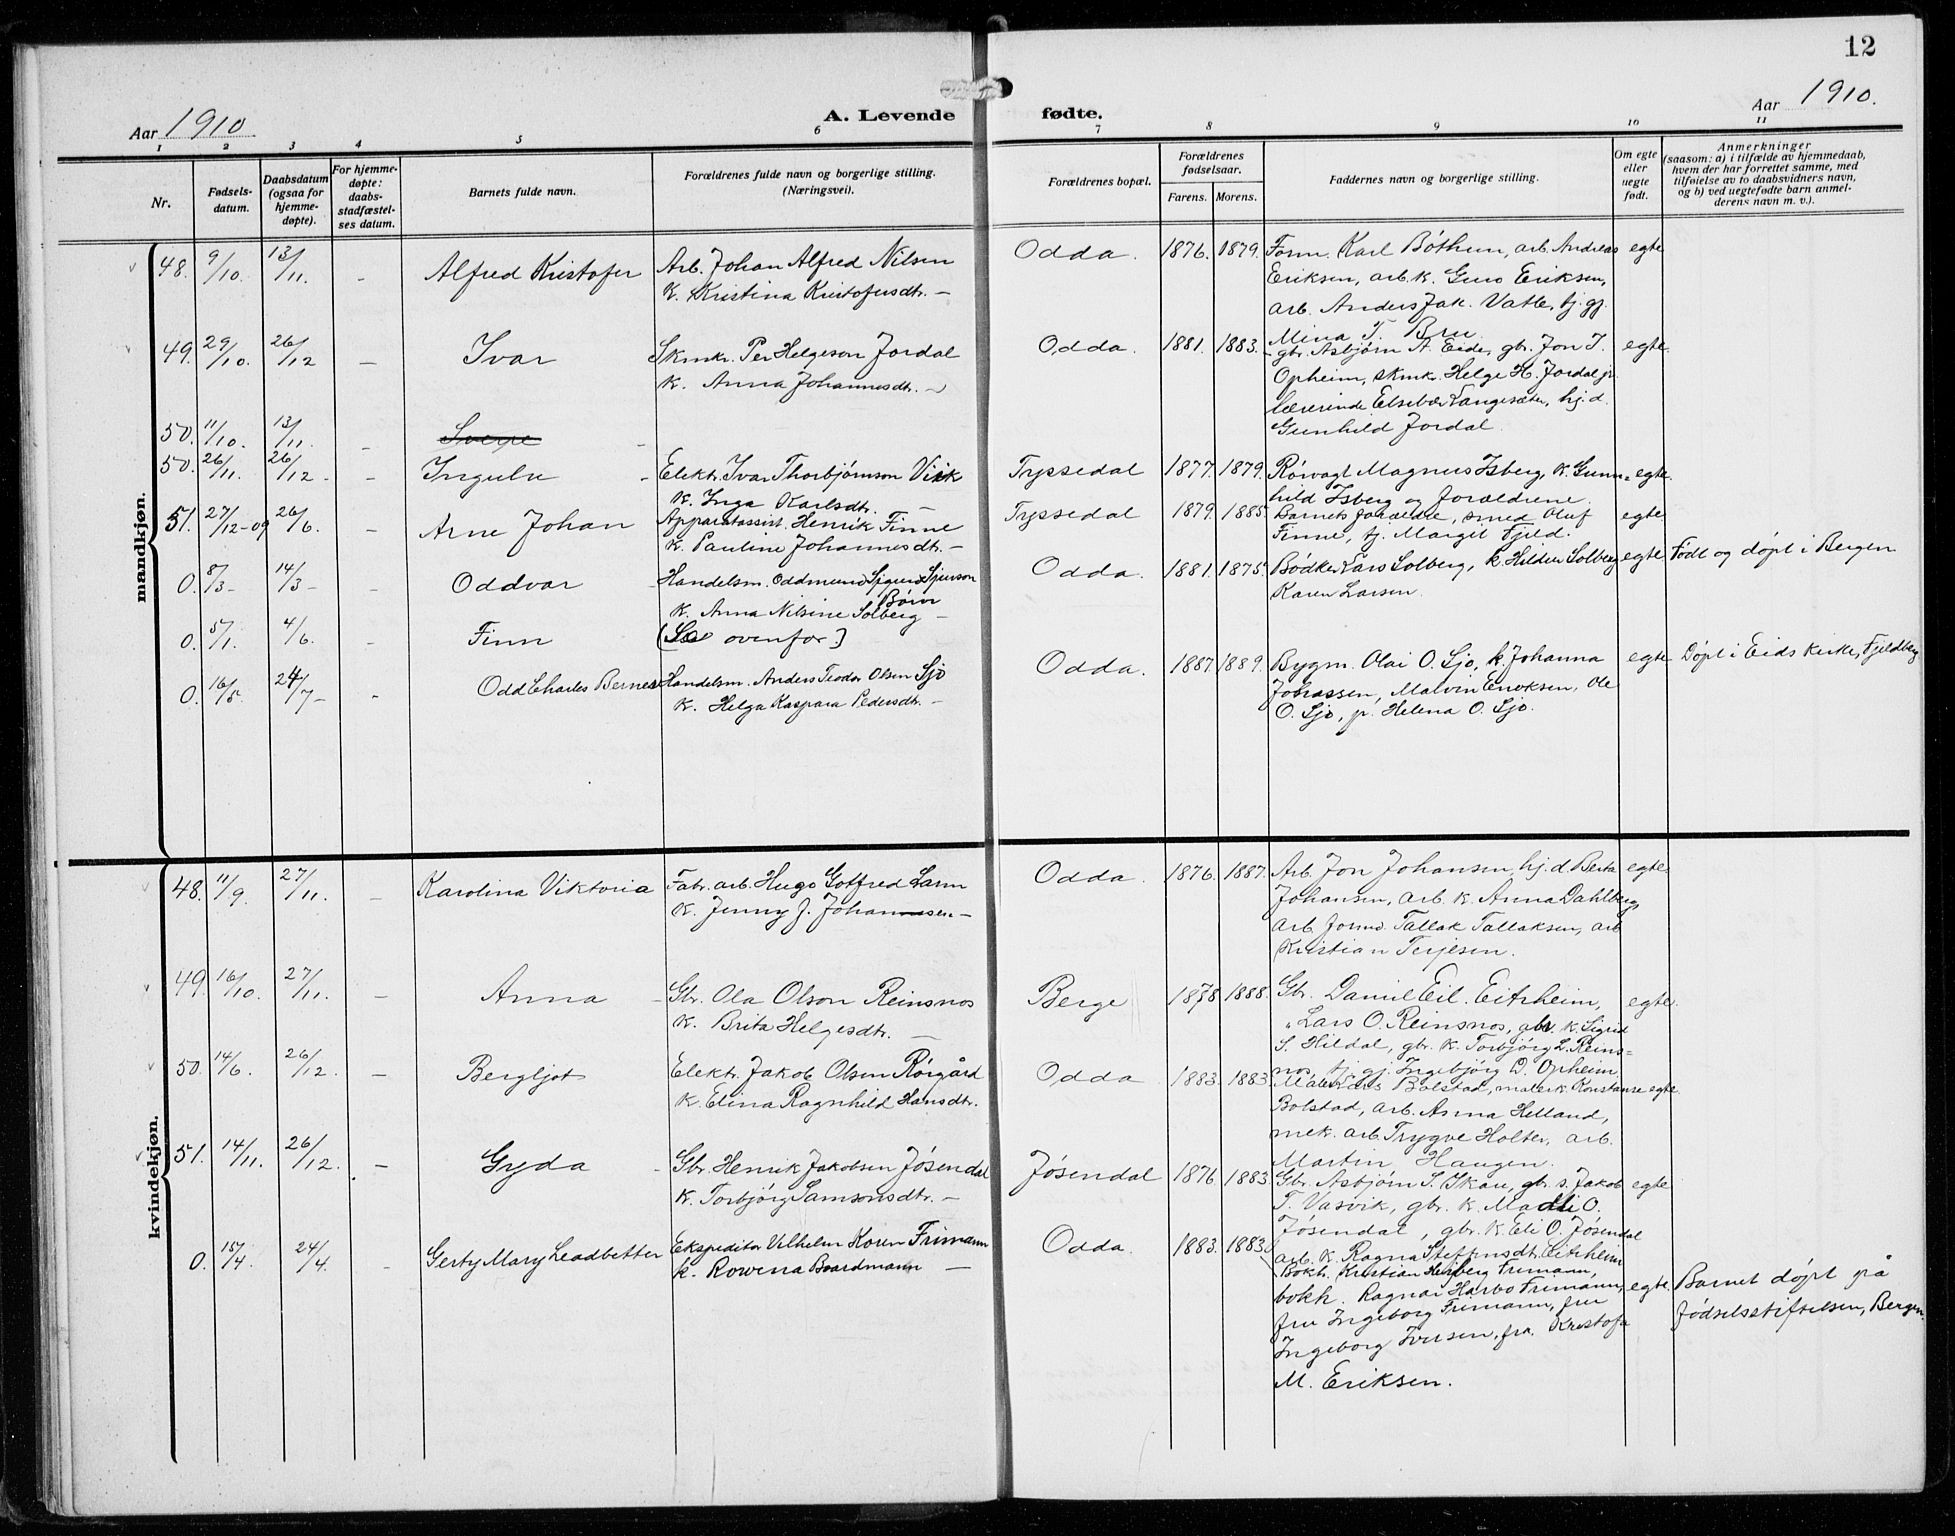 12
Aar 1910
A. Levende fødte.
Aar 1910.
1 2 3 4 5 6 7 8 9 10 11
Nr.
Fødsels-
datum.
Daabsdatum
(ogsaa for
hjemme-
døpte).
For hjemme-
døpte:
daabs-
stadfæstel-
ses datum.
Barnets fulde navn.
Forældrenes fulde navn og borgerlige stilling.
(Næringsvei).
Forældrenes bopæl.
Forældrenes
fødselsaar.
Farens. Morens.
Faddernes navn og borgerlige stilling.
Om egte
eller
uegte
født.
Anmerkninger
(saasom: a) i tilfælde av hjemmedaab,
hvem der har forrettet samme, med
tilføielse av to daabsvidners navn,
og b) ved uegtefødte barn anmel-
derens navn m. v.).
mandkjøn.
48. 9/10. 13/11. - Alfred Kristofer Arb. Johan Alfred Nilsen Odda. 1876. 1879. Form. Karl Bøthun, arb. Andreas egte
K. Kristina Kristofersdtr. - Eriksen, arb. k. Guro Eriksen,
arb. Anders Jak. Vatle, tj. gj.
Mina T. Bru
49. 29/10. 26/12 - Ivar Skmkr. Per Helgeson Jordal Odda. 1881. 1883. gbr. Asbjørn A. Eide, gbr. Jon J. egte.
K. Anna Johannesdtr. - Opheim, skmkr. Helge H. Jordal jr.
lærerinde Elsebær Langesæter, hj. d.
Gunhild Jordal.
50. 11/10. 13/11. - Sverre -
50. 26/11. 26/12. - Ingulv - Elektr. Ivar Thorbjørnson Vik Tyssedal 1877. 1879. Rørvagt Magnus Isberg, k. Gunn= egte.
K. Inga Karlsdtr. - hild Isberg og forældrene.
51. 27/12-09 26/6. - Arne Johan Apparatassist. Henrik Finne Tyssedal 1879. 1885. Barnets forældre, smed Oluf egte
K. Pauline Johannesdtr. - Finne, tj. Margit Fjeld.
0. 8/3- 14/3- - Oddvar Handelsm. Oddmund Sigurd Sjurson Odda. 1881. 1875. Bødker Lars Solberg, k. Hilda Solberg egte. Født og døpt i Bergen
Børn
K. Anna Nilsine Solberg - Karen Larsen.
0. 5/1. 4/6. - Finn (Se ovenfor.)
0. 16/5. 24/7- - Odd Charles Berner Handelsm. Anders Teodor Olsen Sjo Odda. 1887. 1889. Bygm. Olai O. Sjo, k. Johanna egte Døpt i Eids kirke, Fjeldberg
K. Helga Kaspara Pedersdtr. - Johassen, Malvin Enoksen, Ole
O. Sjo, p. Helena O. Sjo.
kvindekjøn.
48. 11/9. 27/11. - Karolina Viktoria Fabr. arb. Hugo Gotfred Larm Odda. 1876. 1887. Arb. Jon Johansen, hj. d. Berta egte.
K. Jenny J. Johannesen - Johansen, arb. k. Anna Dahlberg,
arb. formd. Tallak Tallaksen, arb.
Kristian Terjesen.
49. 16/10. 27/11. - Anna - Gbr. Ola Olson Reinsnos Berge 1878 1888. Gbr. Daniel Eil. Eitrheim, egte.
K. Brita Helgesdtr. - " Lars O. Reinsnos, gbr. k. Sigrid
S. Hildal, gbr. k. Torbjørg L. Reins=
nos, tj. gj. Ingebjørg D. Opheim
50. 14/6. 26/12. - Bergljot Elektr. Jakob Olsen Rørgård Odda 1883. 1883. Maler Lars Bolstad, maler k. Konstanse egte.
K. Elina Ragnhild Hansdtr. Bolstad, arb. Anna Helland,
mek. arb. Trygve Holter, arb.
Martin Haugen.
51. 14/11. 26/12. - Gyda - Gbr. Henrik Jakobsen Jøsendal Jøsendal 1876. 1883. Gbr. Asbjørn S. Skau, gbr. s. Jakob egte
K. Torbjørg Samsonsdtr. - T. Vasvik, gbr. k. Madli O.
Jøsendal, gbr. k. Eli O. Jøsendal
arb. k. Ragna Steffensdtr. Eitrheim
0. 15/4. 24/4. - Gerty Mary Leadbetter Ekspeditør Vilhelm Koren Frimann Odda. 1883. 1883. Bokh. Kristian Herberg Frimann,
K. Rowena Boardmann - bokh. Ragnar Harbo Frimann, egte. Barnet døpt på
fru Ingeborg Frimann, fru fødselsstiftelsen, Bergen.
Ingeborg Iversen, frk. Kristofa
M. Eriksen.